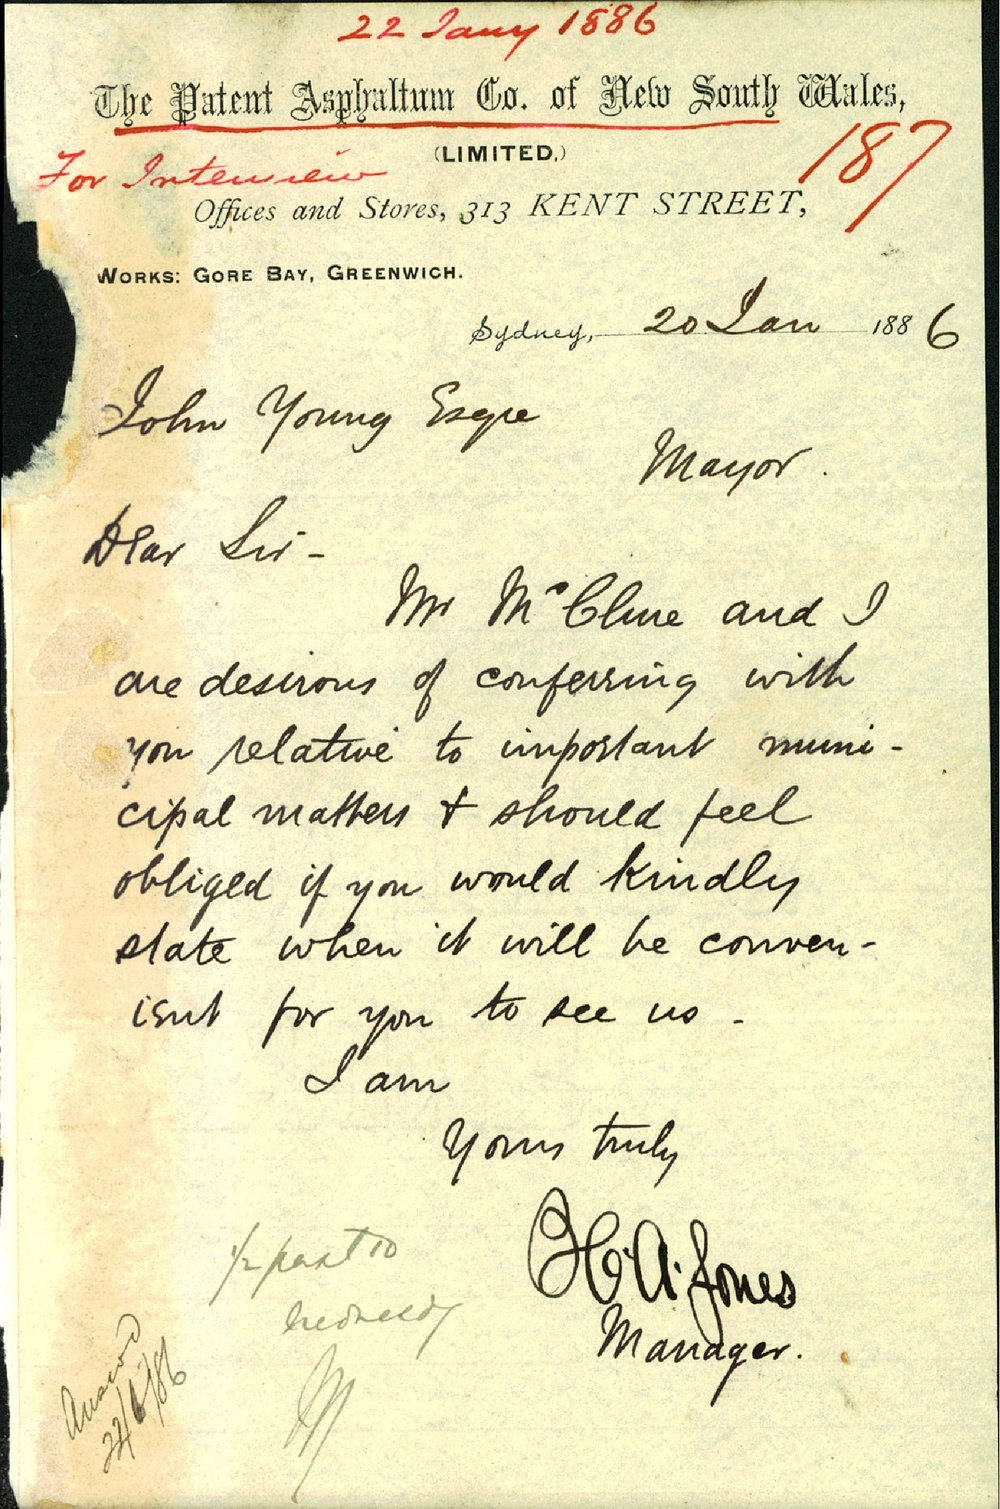 22 Jany 1886
The Patent Asphaltum Co. of New South Wales,
(LIMITED.)
187
For Interview
Offices and Stores, 313 KENT STREET,
WORKS: GORE BAY, GREENWICH.
Sydney, 20 Jan 1886
John Young Esqre
Mayor.
Dear Sir -
Mr McClure and I
are desirous of conferring with
you relative to important muni-
cipal matters & should feel
obliged if you would kindly
state when it will be conven-
ient for you to see us -
I am
Yours truly
H. A. Jones
Manager.
1/2 past 10
Wednesdy
Answd